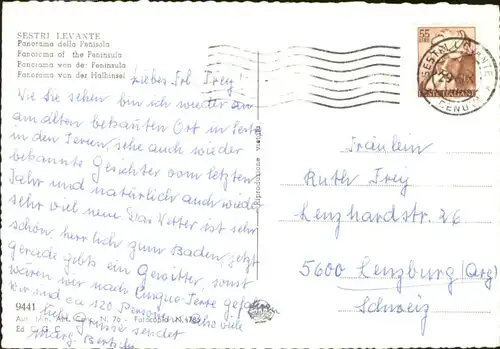 SESTRI LEVANTE
Panorama della Penisola
Panorama of the Peninsula
Panorama von de: Feninsula
Panorama van der Halbinsel
Liebes Frl Frey!
Wie Sie sehen bin ich wieder am
am alten bekannten Ort in Sestri
in den Ferien, sehe auch wieder
bekannte Gesichter vom letzten
Jahr und natürlich auch wieder
sehr viel neue. Das Wetter ist sehr
schön herrlich zum Baden, jetzt
gerade gibts ein Gewitter, sonst
wären wir nach Cinque-Terre gefahren
wir sind ca 120 Personen viele
Liebe Grüsse sendet
Marg.
55
SESTRI LEVANTE
GENOVA
Riproduzione vietata
Fräulein
Ruth Frey
Lenzhardstr. 26
5600 Lenzburg (Arg)
Schweiz
9441
N. 76 - Fotocolor
Ed